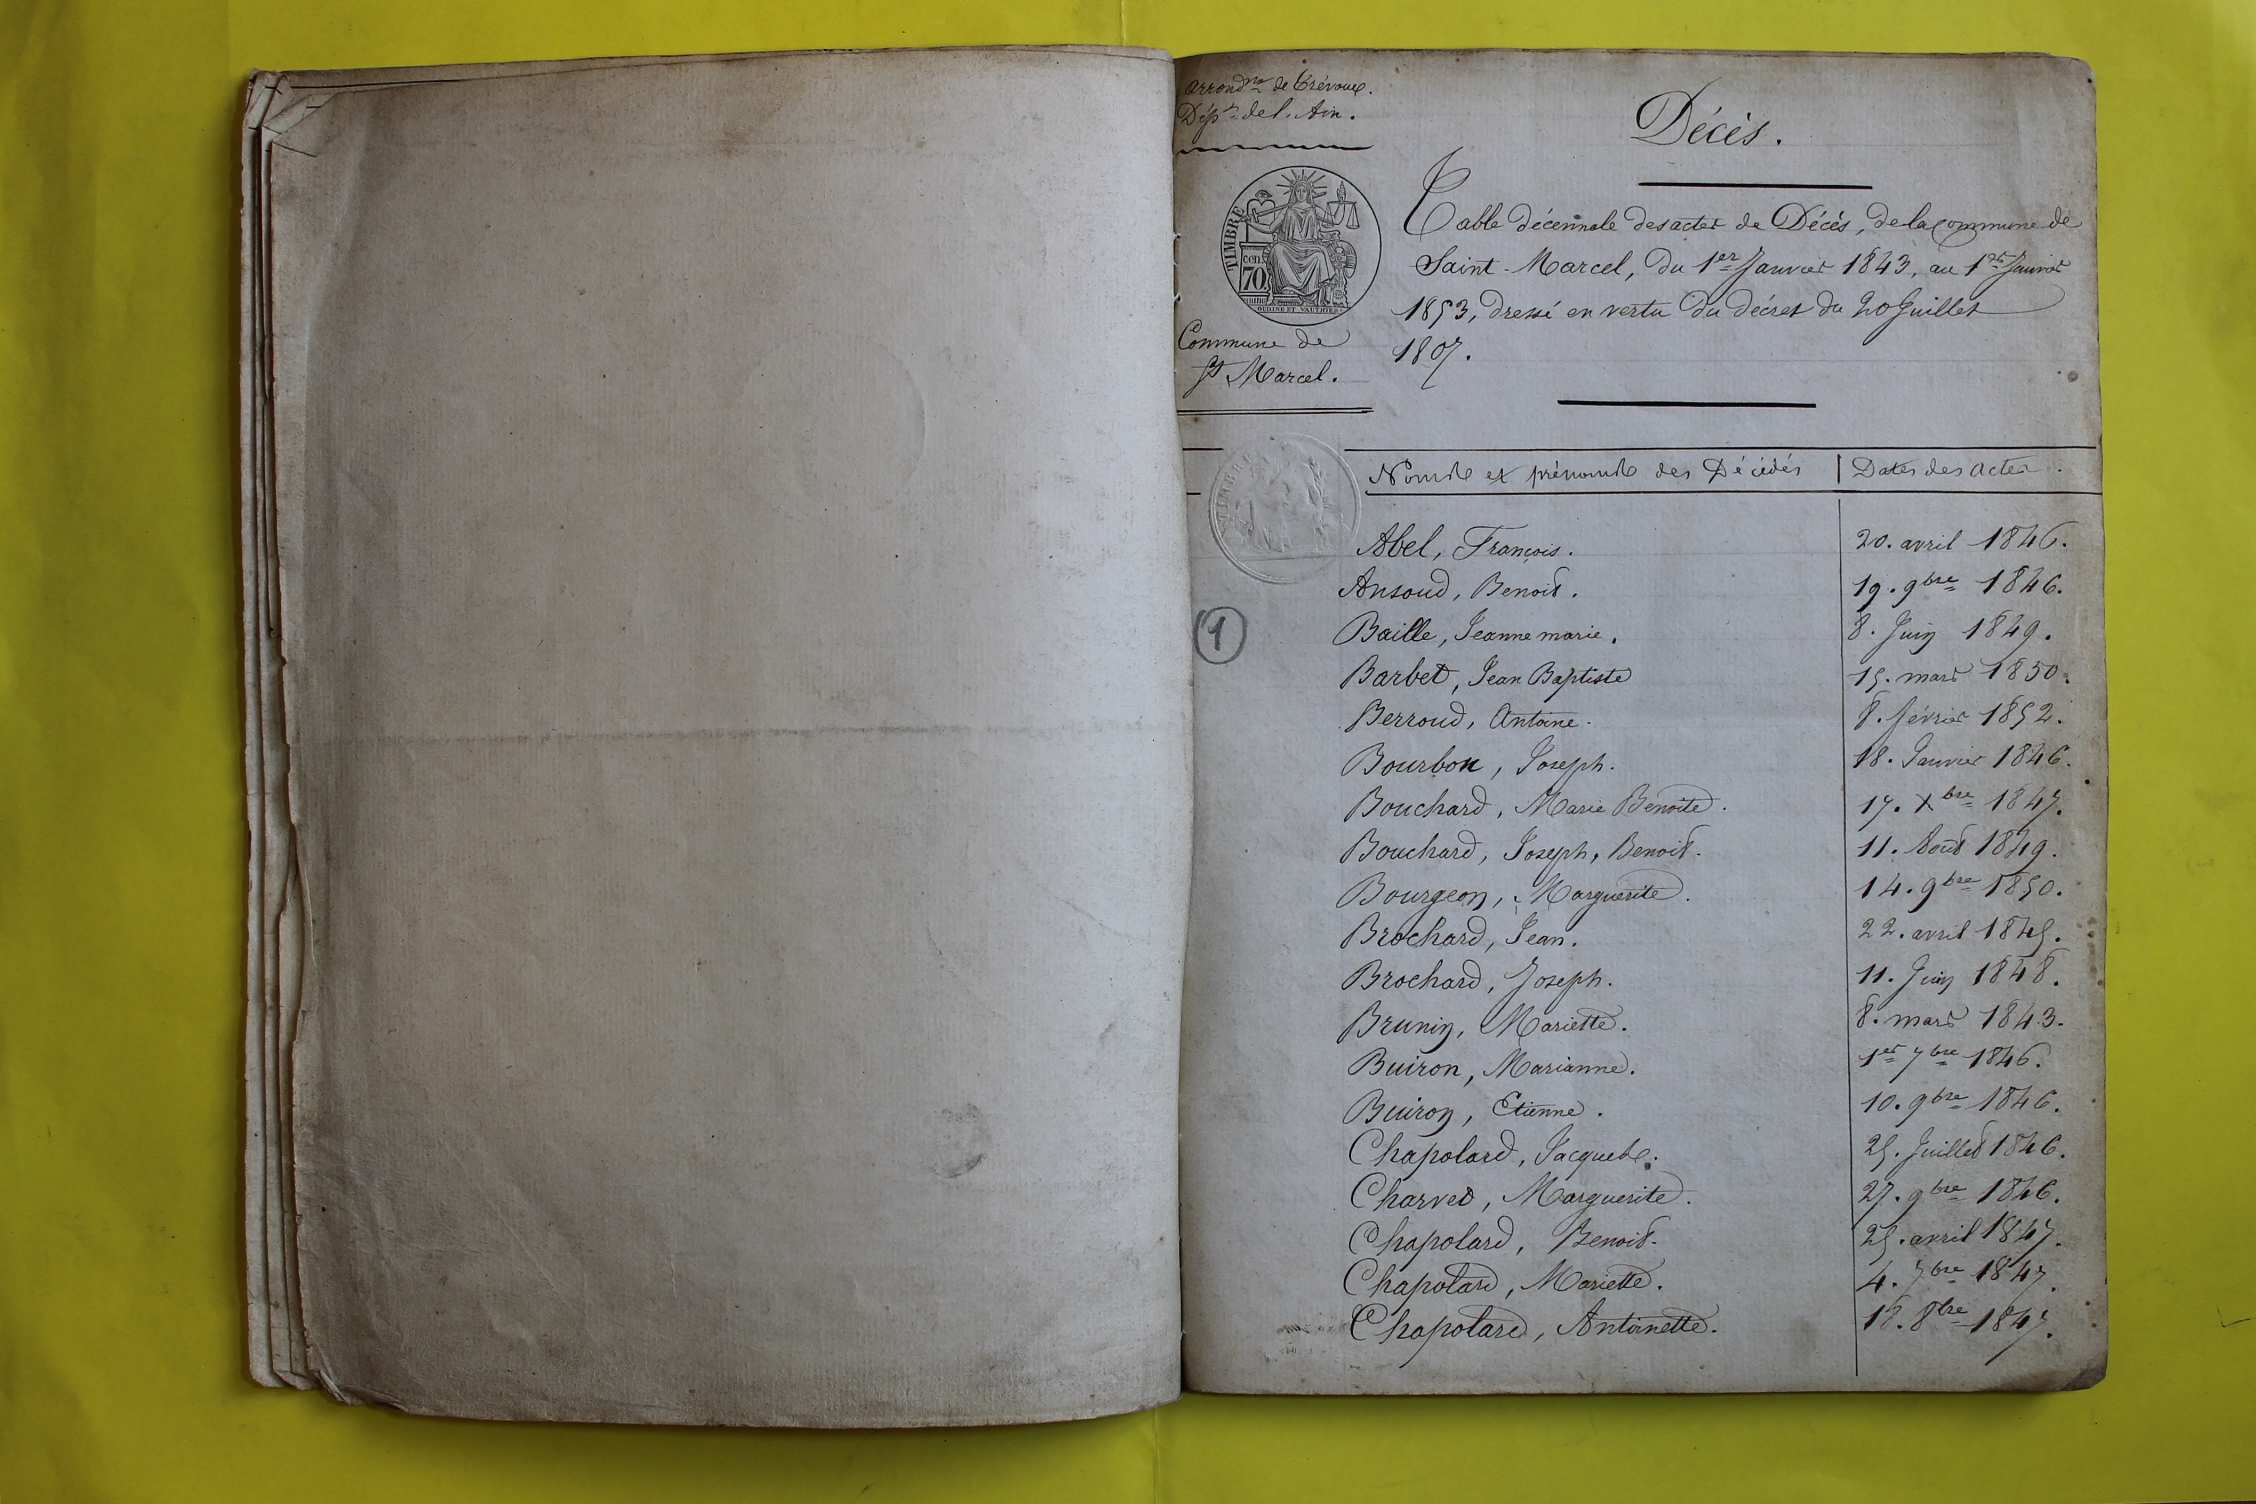 arrond.nt de Trévoux.
Dép.t de l'Ain.
Décès.
TIMBRE
cen
70
OUDINE ET VAUTHIER
Table décennale des actes de Décès, de la Commune de
Saint-Marcel, du 1er Janvier 1843, au 1er Janvier
1853, dressé en vertu du décret du 20 Juillet
1807.
Commune de
St Marcel.
TIMBRE
Noms et prénoms des Décédés | Dates des actes.
Abel, François. 20. avril 1846.
Ansoud, Benoit. 19. 9bre 1846.
1
Baille, Jeanne marie. 8. Juin 1849.
Barbet, Jean Baptiste 15. mars 1850.
Berroud, Antoine. 8. février 1852.
Bourbon, Joseph. 18. Janvier 1846.
Bouchard, Marie Benoite. 17. Xbre 1847.
Bouchard, Joseph, Benoit. 11. Août 1849.
Bourgeon, Marguerite. 14. 9bre 1850.
Brochard, Jean. 22. avril 1845.
Brochard, Joseph. 11. Juin 1848.
Brunin, Mariette. 8. mars 1843.
Buiron, Marianne. 1er 7bre 1846.
Buiron, Etienne. 10. 9bre 1846.
Chapolard, Jacques. 25. Juillet 1846.
Charvet, Marguerite. 27. 9bre 1846.
Chapolard, Benoit. 25. avril 1847.
Chapolard, Mariette. 4. 7bre 1847.
Chapolard, Antoinette. 18. 8bre 1847.